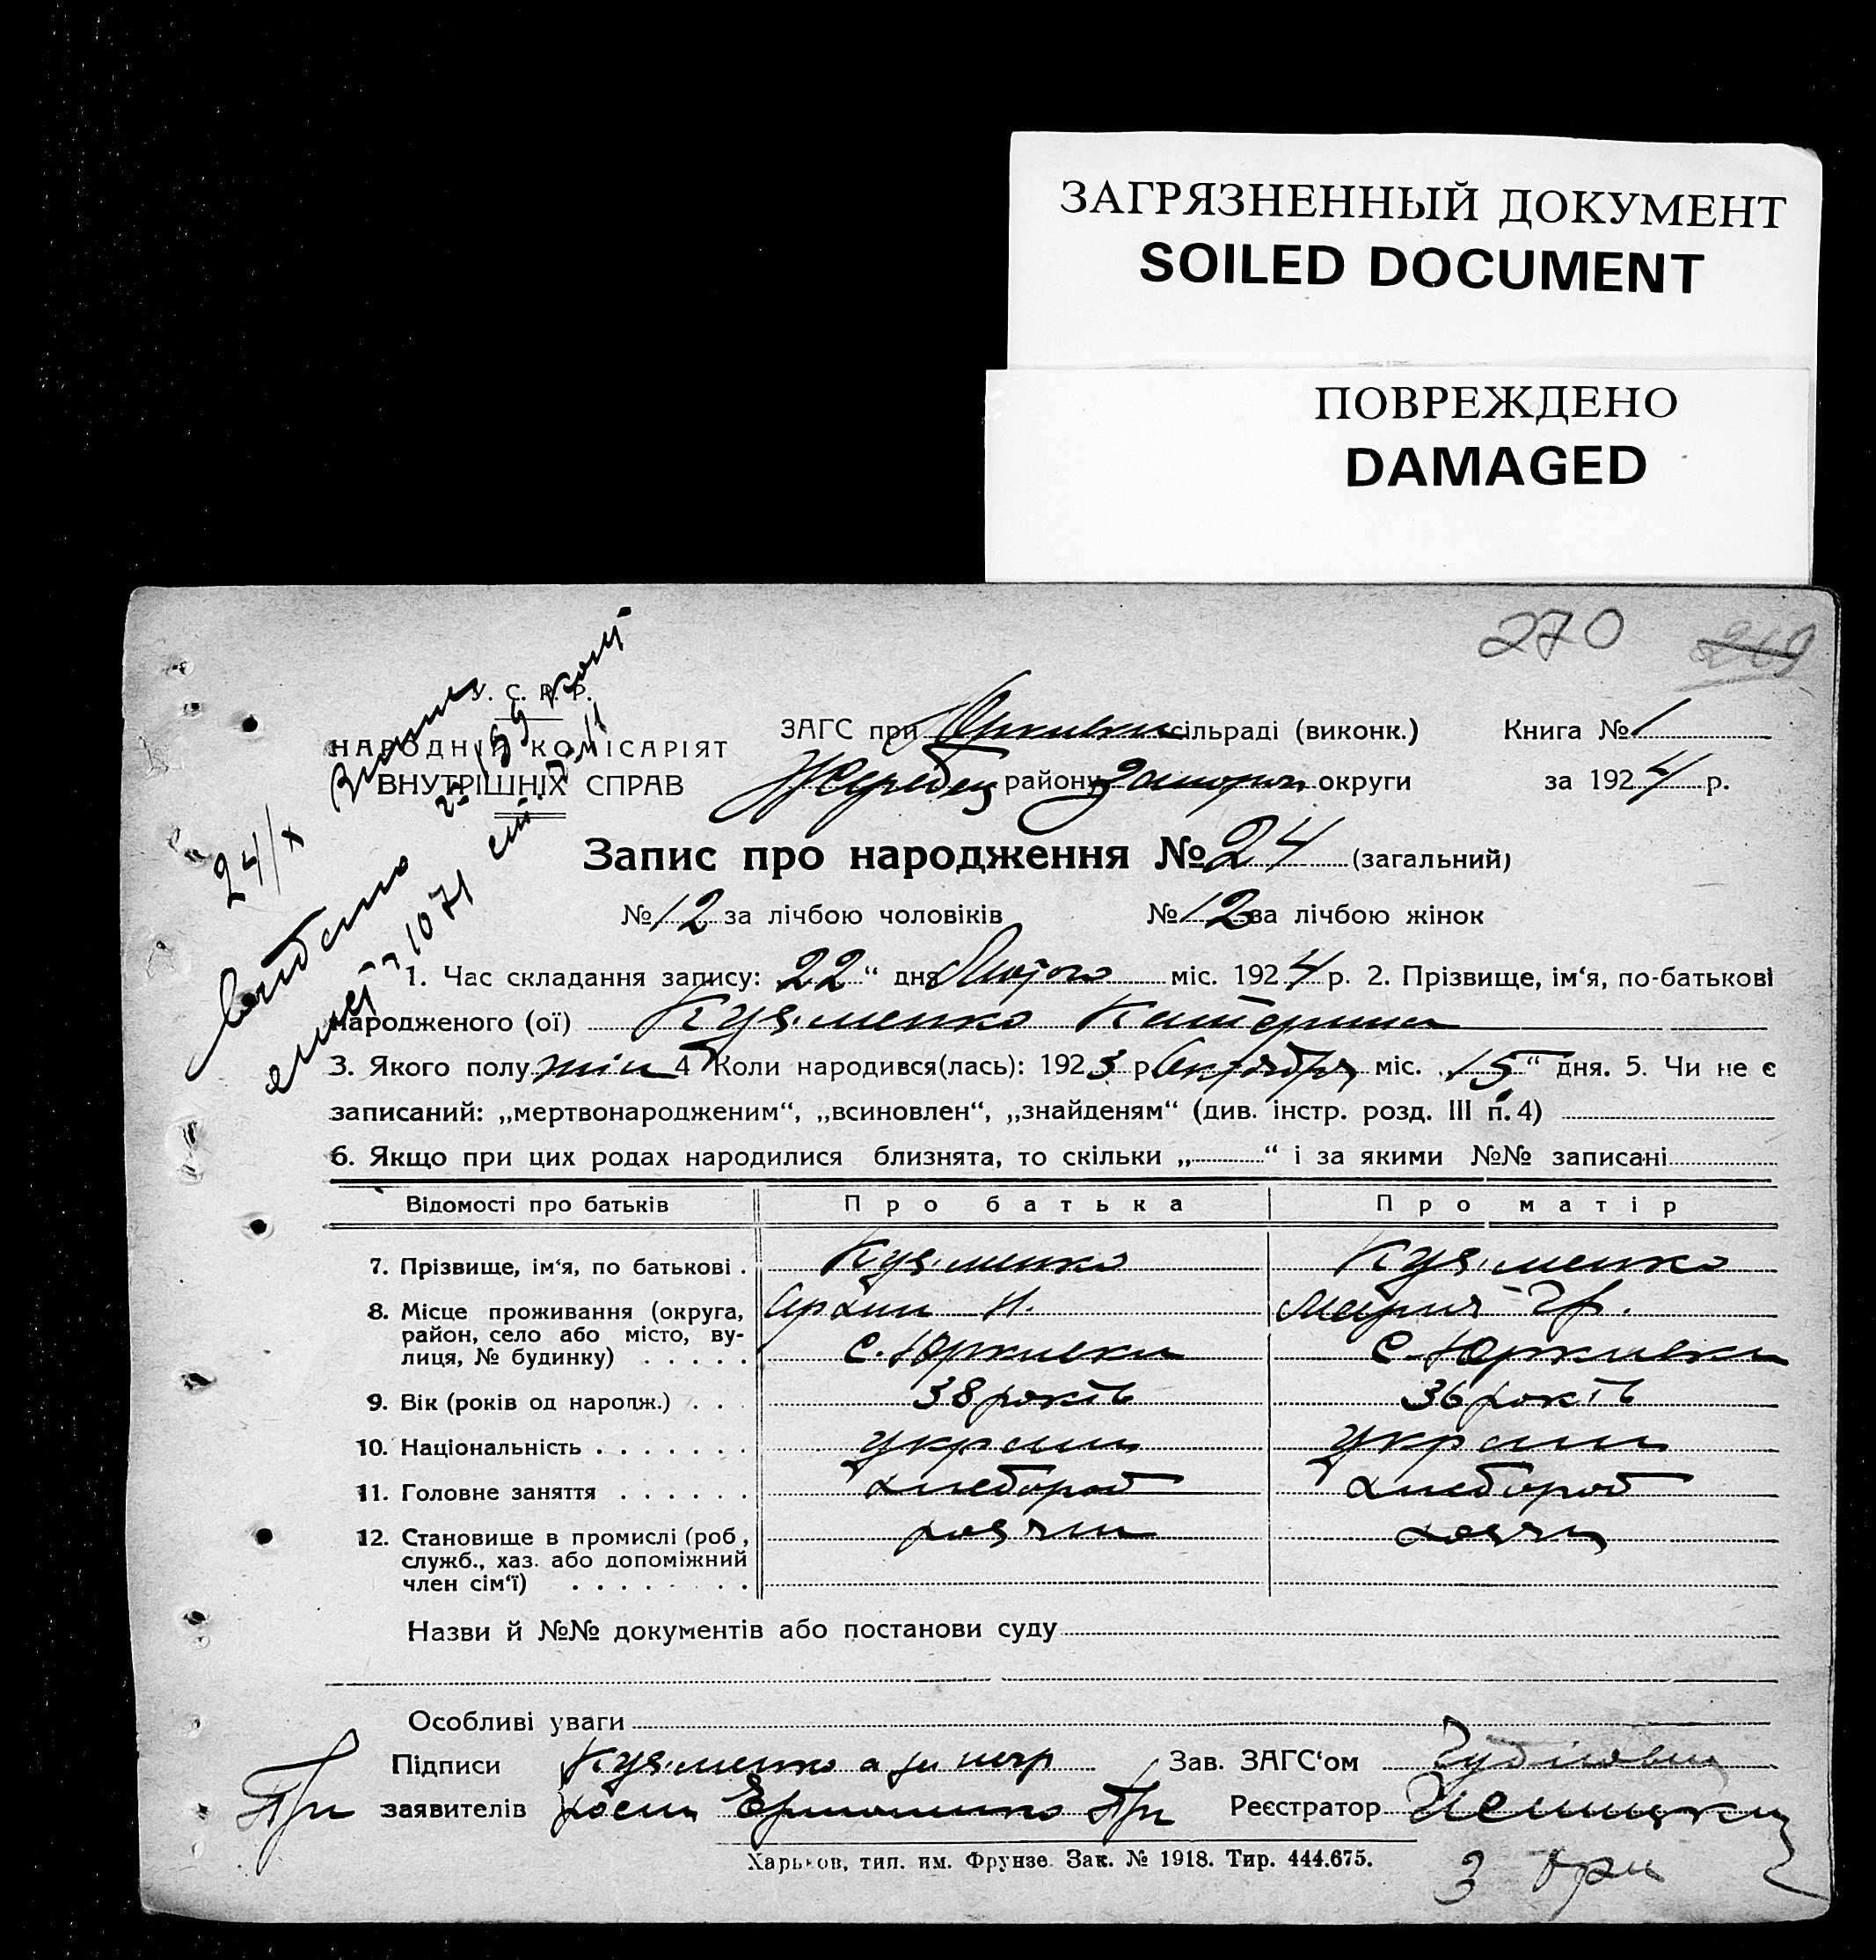 ЗАГРЯЗНЕННЫЙ ДОКУМЕНТ
SOILED DOCUMENT
ПОВРЕЖДЕНО
DAMAGED
270 269
У. С. Р. Р.
НАРОДНІЙ КОМІСАРІЯТ
ВНУТРІШНІХ СПРАВ
24/х
1071
ЗАГС при Юркивки сільраді (виконк.) Книга № 1
Жеребец району Запорож округи за 1924 р.
Запис про народження № 24 (загальний)
№ 12 за лічбою чоловіків № 12 за лічбою жінок
1. Час складання запису: 22 “ дня Лютого міс. 1924 р. 2. Прізвище, ім‘я, по-батькові
народженого (ої) Кузьменко Катерина
3. Якого полу жін 4 Коли народився(лась): 1923 р Октября міс. „ 15 “ дня. 5. Чи не є
записаний: „мертвонародженим“, „всиновлен“, „знайденям“ (див. інстр. розд. III п. 4)
6. Якщо при цих родах народилися близнята, то скільки „ “ і за якими №№ записані
Відомості про батьків Про батька Про матір
7. Прізвище, ім‘я, по батькові . Кузьменко Кузьменко
8. Місце проживання (округа, район, село або місто, вулиця, № будинку) с. Юркивка с. Юркивка
9. Вік (років од народж.) . . . 38 років 36 років
10. Національність . . . . . . . україн україн
11. Головне заняття . . . . . . хлебороб хлебороб
12. Становище в промислі (роб., служб., хаз. або допоміжний член сім‘ї) . . . . . . . .
Назви й №№ документів або постанови суду
Особливі уваги
Підписи Кузьменко а за негр Зав. ЗАГС‘ом
заявителів Реєстратор
Харьков, тип. им. Фрунзе. Зак. № 1918. Тир. 444.675.